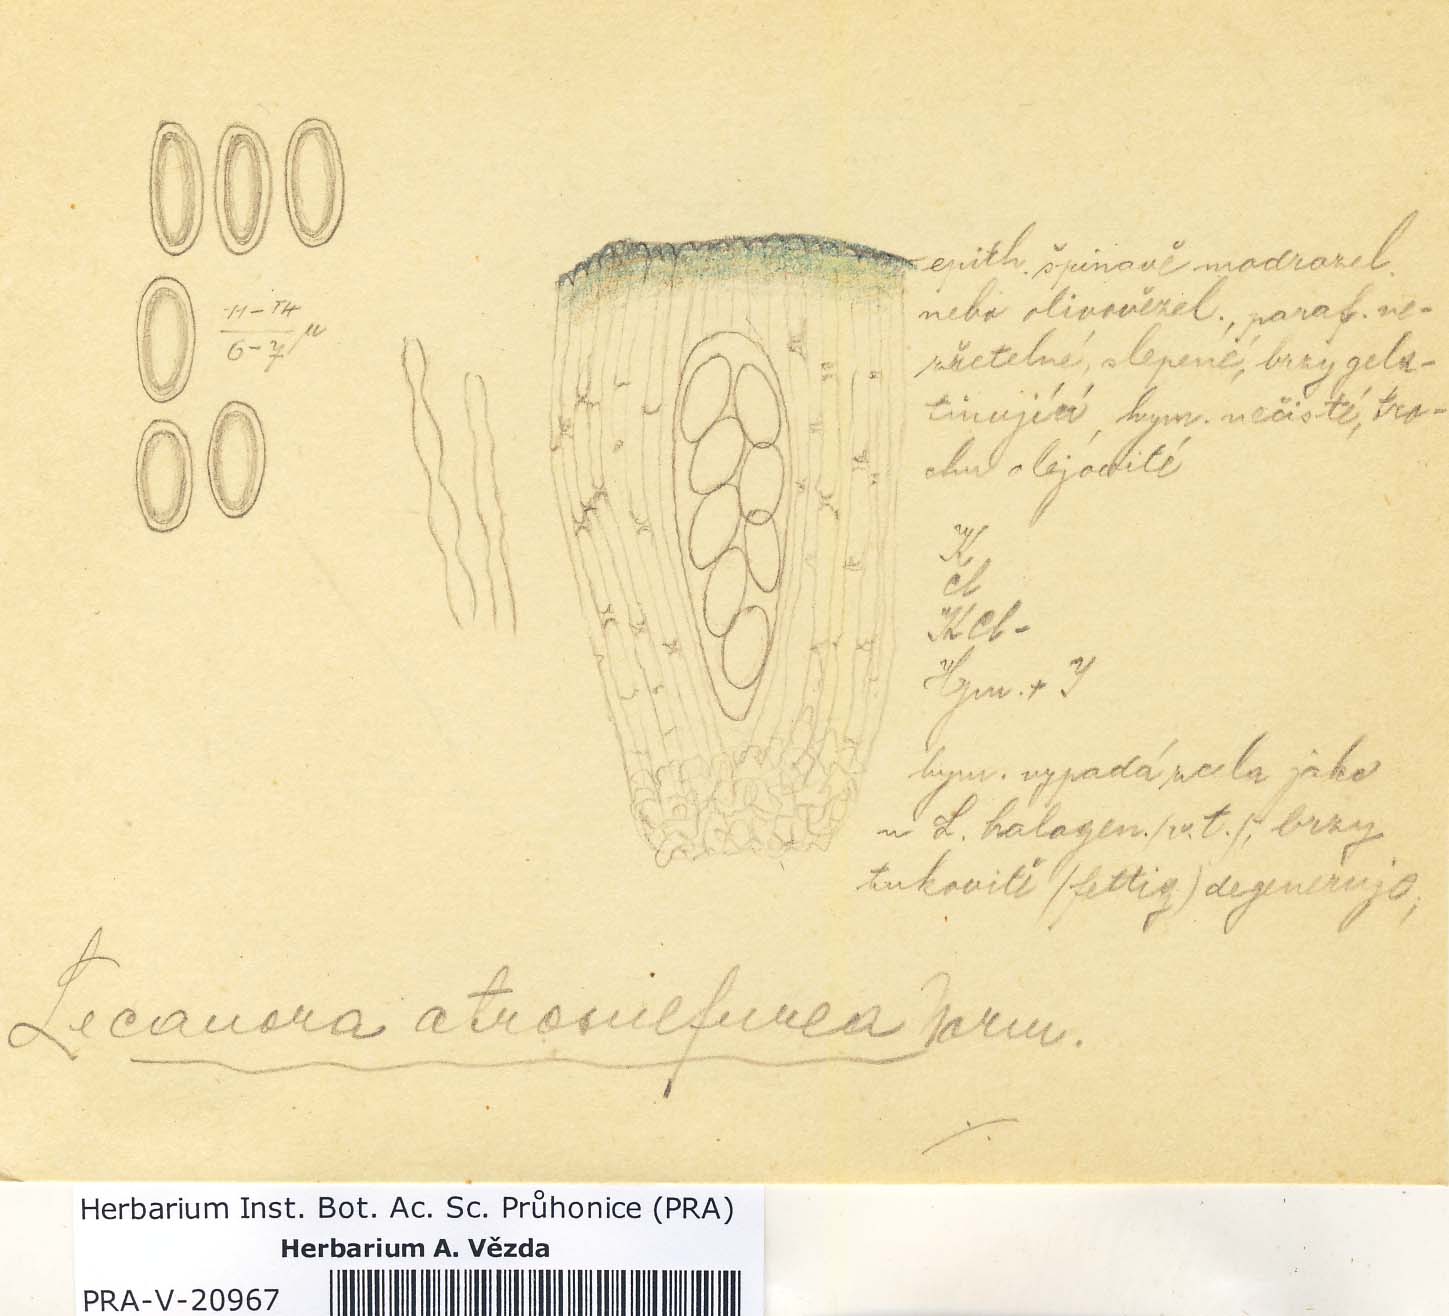 11-14
6-7 μ
epith. špinavě modrozel.
nebo olivovězel., paraf. ne-
zřetelné, slepené, brzy gela-
tinující, hym. nečisté, tro-
chu olejovité
K
Cl
KCl-
Hym. + J
hym. vypadá zcela jako
u L. halogen. (v. t.), brzy
tukovitě (fettig) degeneruje,
Lecanora atrosulfurea Norm.
Herbarium Inst. Bot. Ac. Sc. Průhonice (PRA)
Herbarium A. Vězda
PRA-V-20967